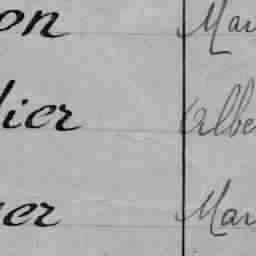 on Mar
lier Albe
er Mar